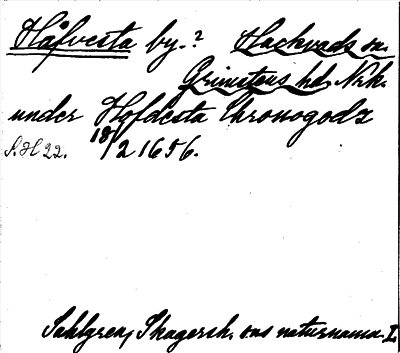 Håfvesta by.? Hackvads sn.
Grimstens hd. Nrk.
under Hofdesta Chronogodz
S.H 22. 18/2 1656.
Sahlgren, Skagersh. sns naturnamn. I.